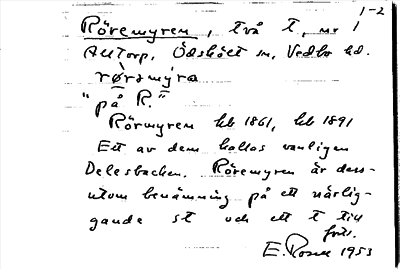 1-2
Röremyren, två t, nr 1
Alltorp, Ödshölt sn, Vedbo hd.
rørəmýra
"på R."
Rörmyren hk 1861, hk 1891
Ett av dem kallas vanligen
Delesbacken. Röremyren är dess-
utom benämning på ett närlig-
gande st och ett t till
forts.
E. Rosell 1953